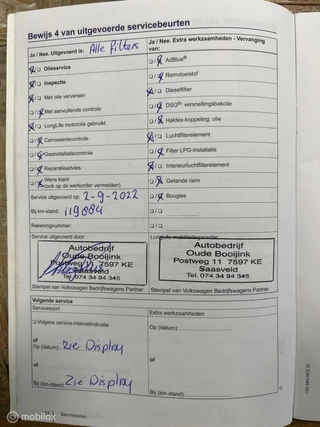 Bewijs 4 van uitgevoerde servicebeurten
Ja / Nee. Uitgevoerd is: Alle filters
Olieservice
Inspectie
Met olie verversen
Met aanvullende controle
LongLife motorolie gebruikt
Carrosseriecontrole
Gasinstallatiecontrole
Reparatieadvies
Wens klant
(ook op de werkorder vermelden)
Service uitgevoerd op: 2-9-2022
Bij km-stand: 119884
Rekeningnummer:
Service uitgevoerd door:
Autobedrijf
Oude Booijink
Postweg 11 7597 KE
Saasveld
Tel. 074 34 94 345
Stempel van Volkswagen Bedrijfswagens Partner
Ja / Nee. Extra werkzaamheden - Vervanging
van:
AdBlue®
Remvloeistof
Dieselfilter
DSG® versnellingsbakolie
Haldex-koppeling: olie
Luchtfilterelement
Filter LPG-installatie
Interieurluchtfilterelement
Getande riem
Bougies
Autobedrijf
Oude Booijink
Postweg 11 7597 KE
Saasveld
Tel. 074 34 94 345
Stempel van Volkswagen Bedrijfswagens Partner
Volgende service
Servicesoort
Volgens service-intervalindicatie
of
Op (datum): zie Display
of
Bij (km-stand): zie Display
Extra werkzaamheden
Op (datum):
of
Bij (km-stand):
Serviceplan
mobilox